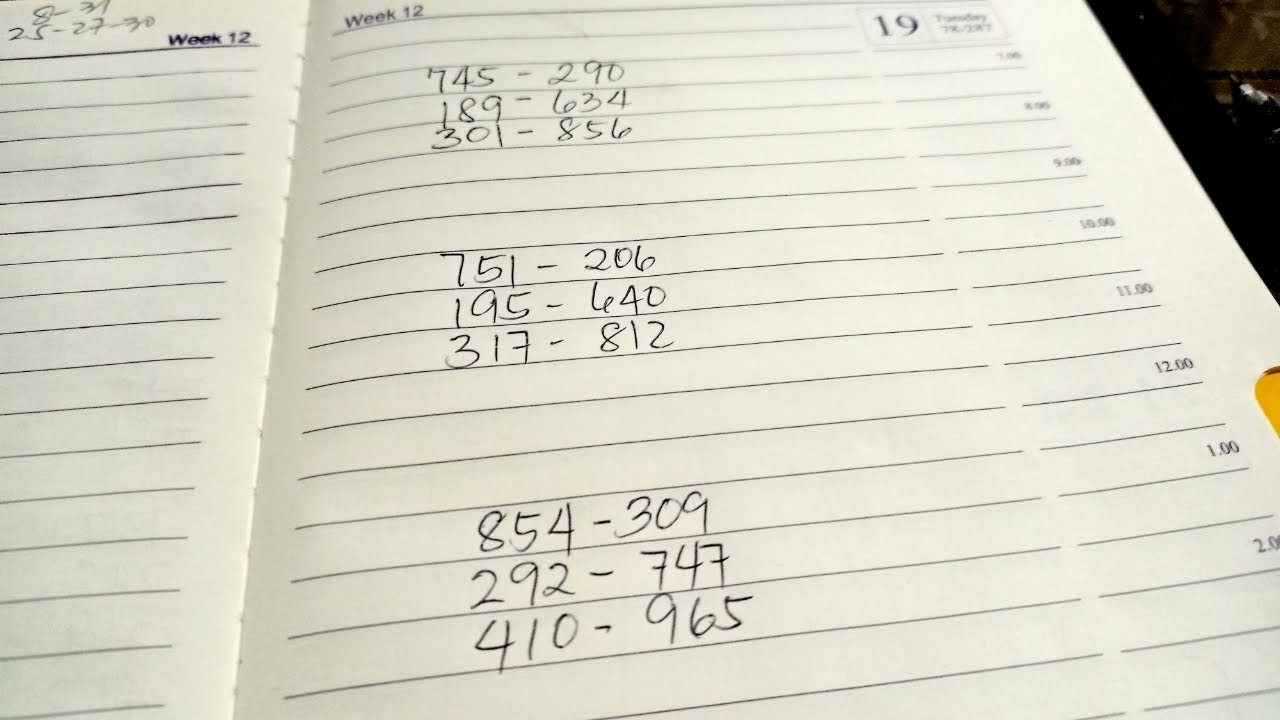 8-31
25-27-30
Week 12
Week 12
19 Tuesday
78-287
7.00
745 - 290
189 - 634
8.00
301 - 856
9.00
10.00
751 - 206
195 - 640
11.00
317 - 812
12.00
1.00
854 - 309
2.00
292 - 747
410 - 965